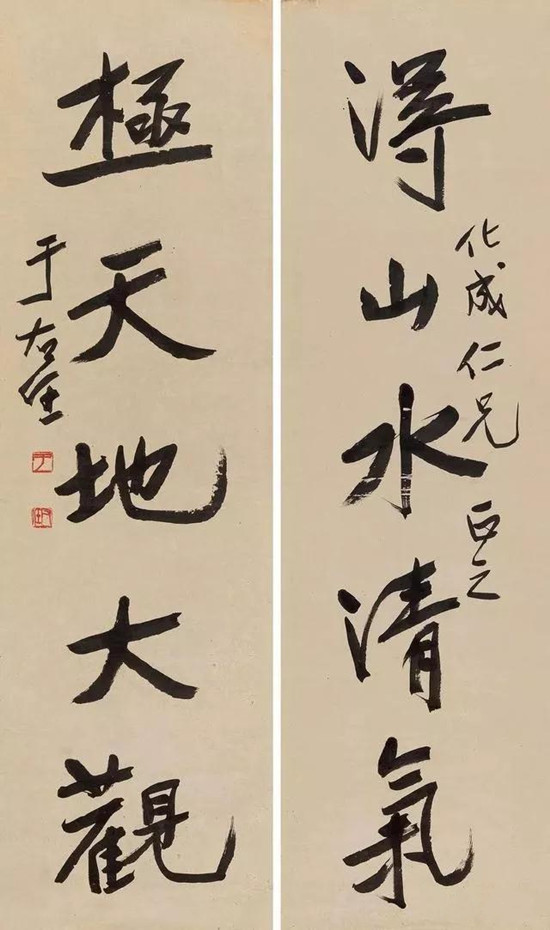 得山水清氣
化成仁兄 正之
極天地大觀
于右任